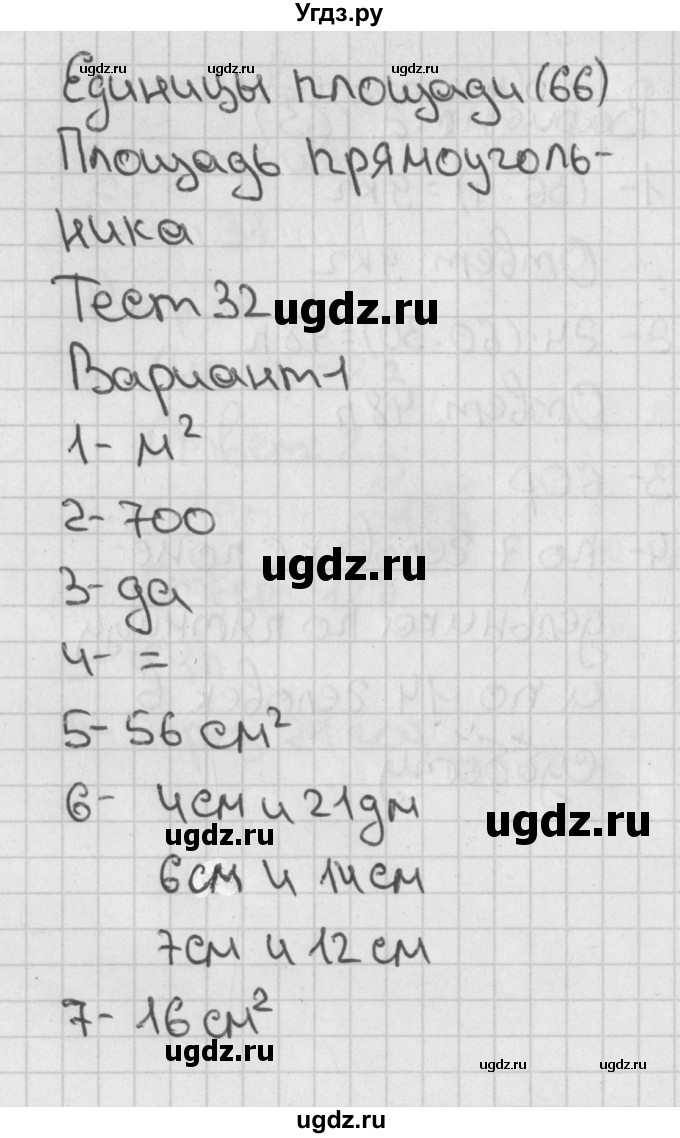 Угдз.ру
ugdz.ru ugdz.ru ugdz.ru
Единицы площади (66)
Площадь прямоуголь-
ника
Тест 32
ugdz.ru
Вариант 1
1- м²
2- 700
ugdz.ru
3- да
4- =
5- 56 см²
6- 4см и 21дм
ugdz.ru ugdz.ru
6см и 14см
7см и 12см
7- 16 см²
ugdz.ru ugdz.ru ugdz.ru
ugdz.ru